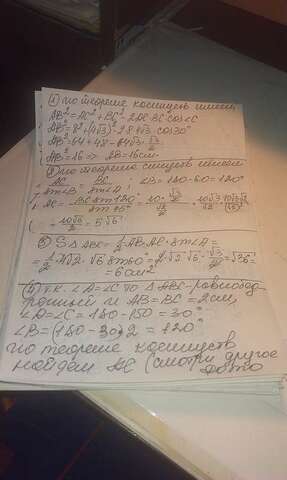 ① по теореме косинусов имеем
AB² = AC² + BC² - 2AC·BC·cos∠C
AB² = 8² + (4√3)² - 2·8·4√3·cos30°
AB² = 64 + 48 - 64√3·√3/2
AB² = 16 => AB = 16см
② по теореме синусов имеем
AC/sin∠B = BC/sin∠A, ∠B = 180-60=120°
AC = BC·sin120°/sin45° = 10·√3/2 / √2/2 = 10√3·√2
= 10√6/2 = 5√6
③ S△ABC = 1/2 AB·AC·sin∠A =
= 1/2·√2·√6·sin60° = 2·√2·√6·√3/2 = √36 =
= 6см²
④ т.к. ∠A=∠C то △ABC-равнобед-
ренный и AB=BC=2см,
∠A=∠C = 180-150=30°
∠B=(180-30·2=120°
по теореме косинусов
найдем AC (смотри другое
фото